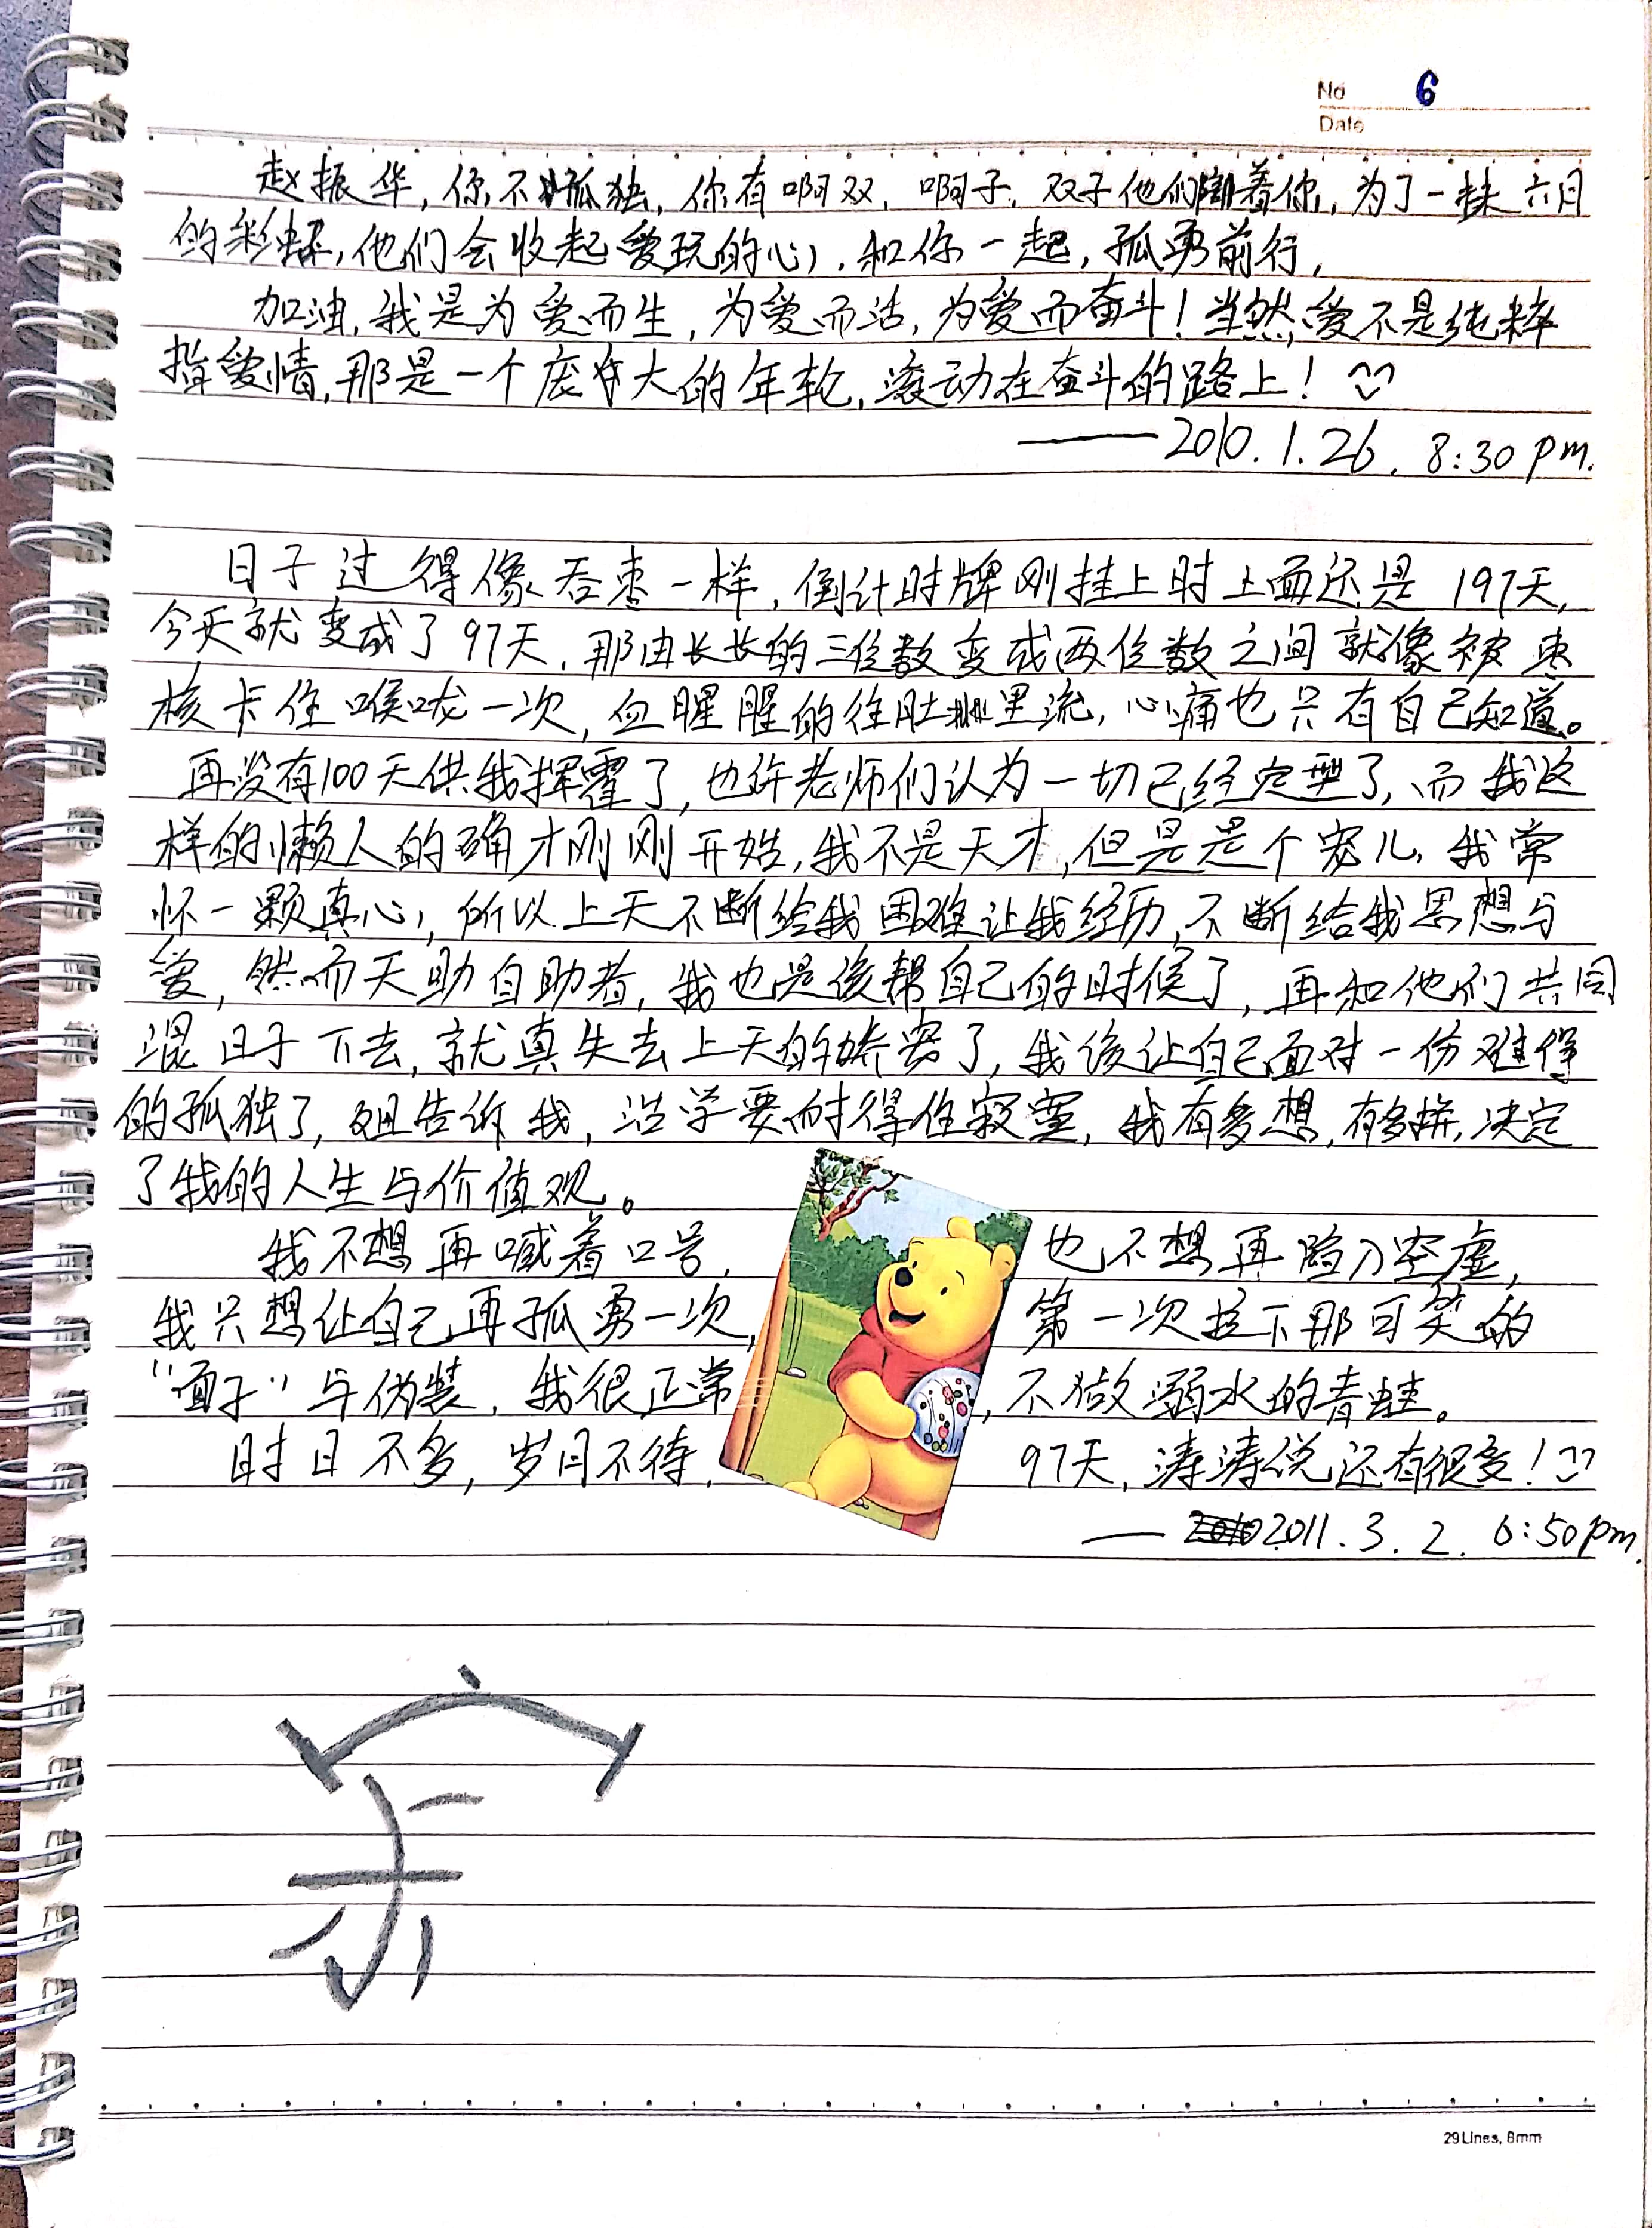 No 6
Date
赵振华，你不孤独，你有啊双，啊子，双子他们陪着你，为了一抹六月
的彩虹，他们会收起爱玩的心，和你一起，孤勇前行，
加油，我是为爱而生，为爱而活，为爱而奋斗！当然，爱不是纯粹
指爱情，那是一个庞大的年轮，滚动在奋斗的路上！
——2010.1.26. 8:30 pm.
日子过得像吞枣一样，倒计时牌刚挂上时上面还是197天，
今天就变成了97天，那由长长的三位数变成两位数之间就像被枣
核卡住喉咙一次，血腥腥的往肚里流，心痛也只有自己知道。
再没有100天供我挥霍了，也许老师们认为一切已经定型了，而我这
样的懒人的确才刚刚开始，我不是天才，但是是个宠儿，我常
怀一颗真心，所以上天不断给我困难让我经历，不断给我思想与
爱，然而天助自助者，我也是该帮自己的时候了，再和他们共同
混日子下去，就真失去上天的娇宠了，我该让自己面对一份难得
的孤独了，姐告诉我，治学要耐得住寂寞，我有多想，有多拼，决定
了我的人生与价值观。
我不想再喊着口号，也不想再陷入空虚，
我只想让自己再孤勇一次，第一次拉下那可笑的
“面子”与伪装，我很正常，不做溺水的青蛙。
时日不多，岁月不待，97天，涛涛说还有很多！
—— 2011.3.2. 6:50pm.
29Lines, 8mm